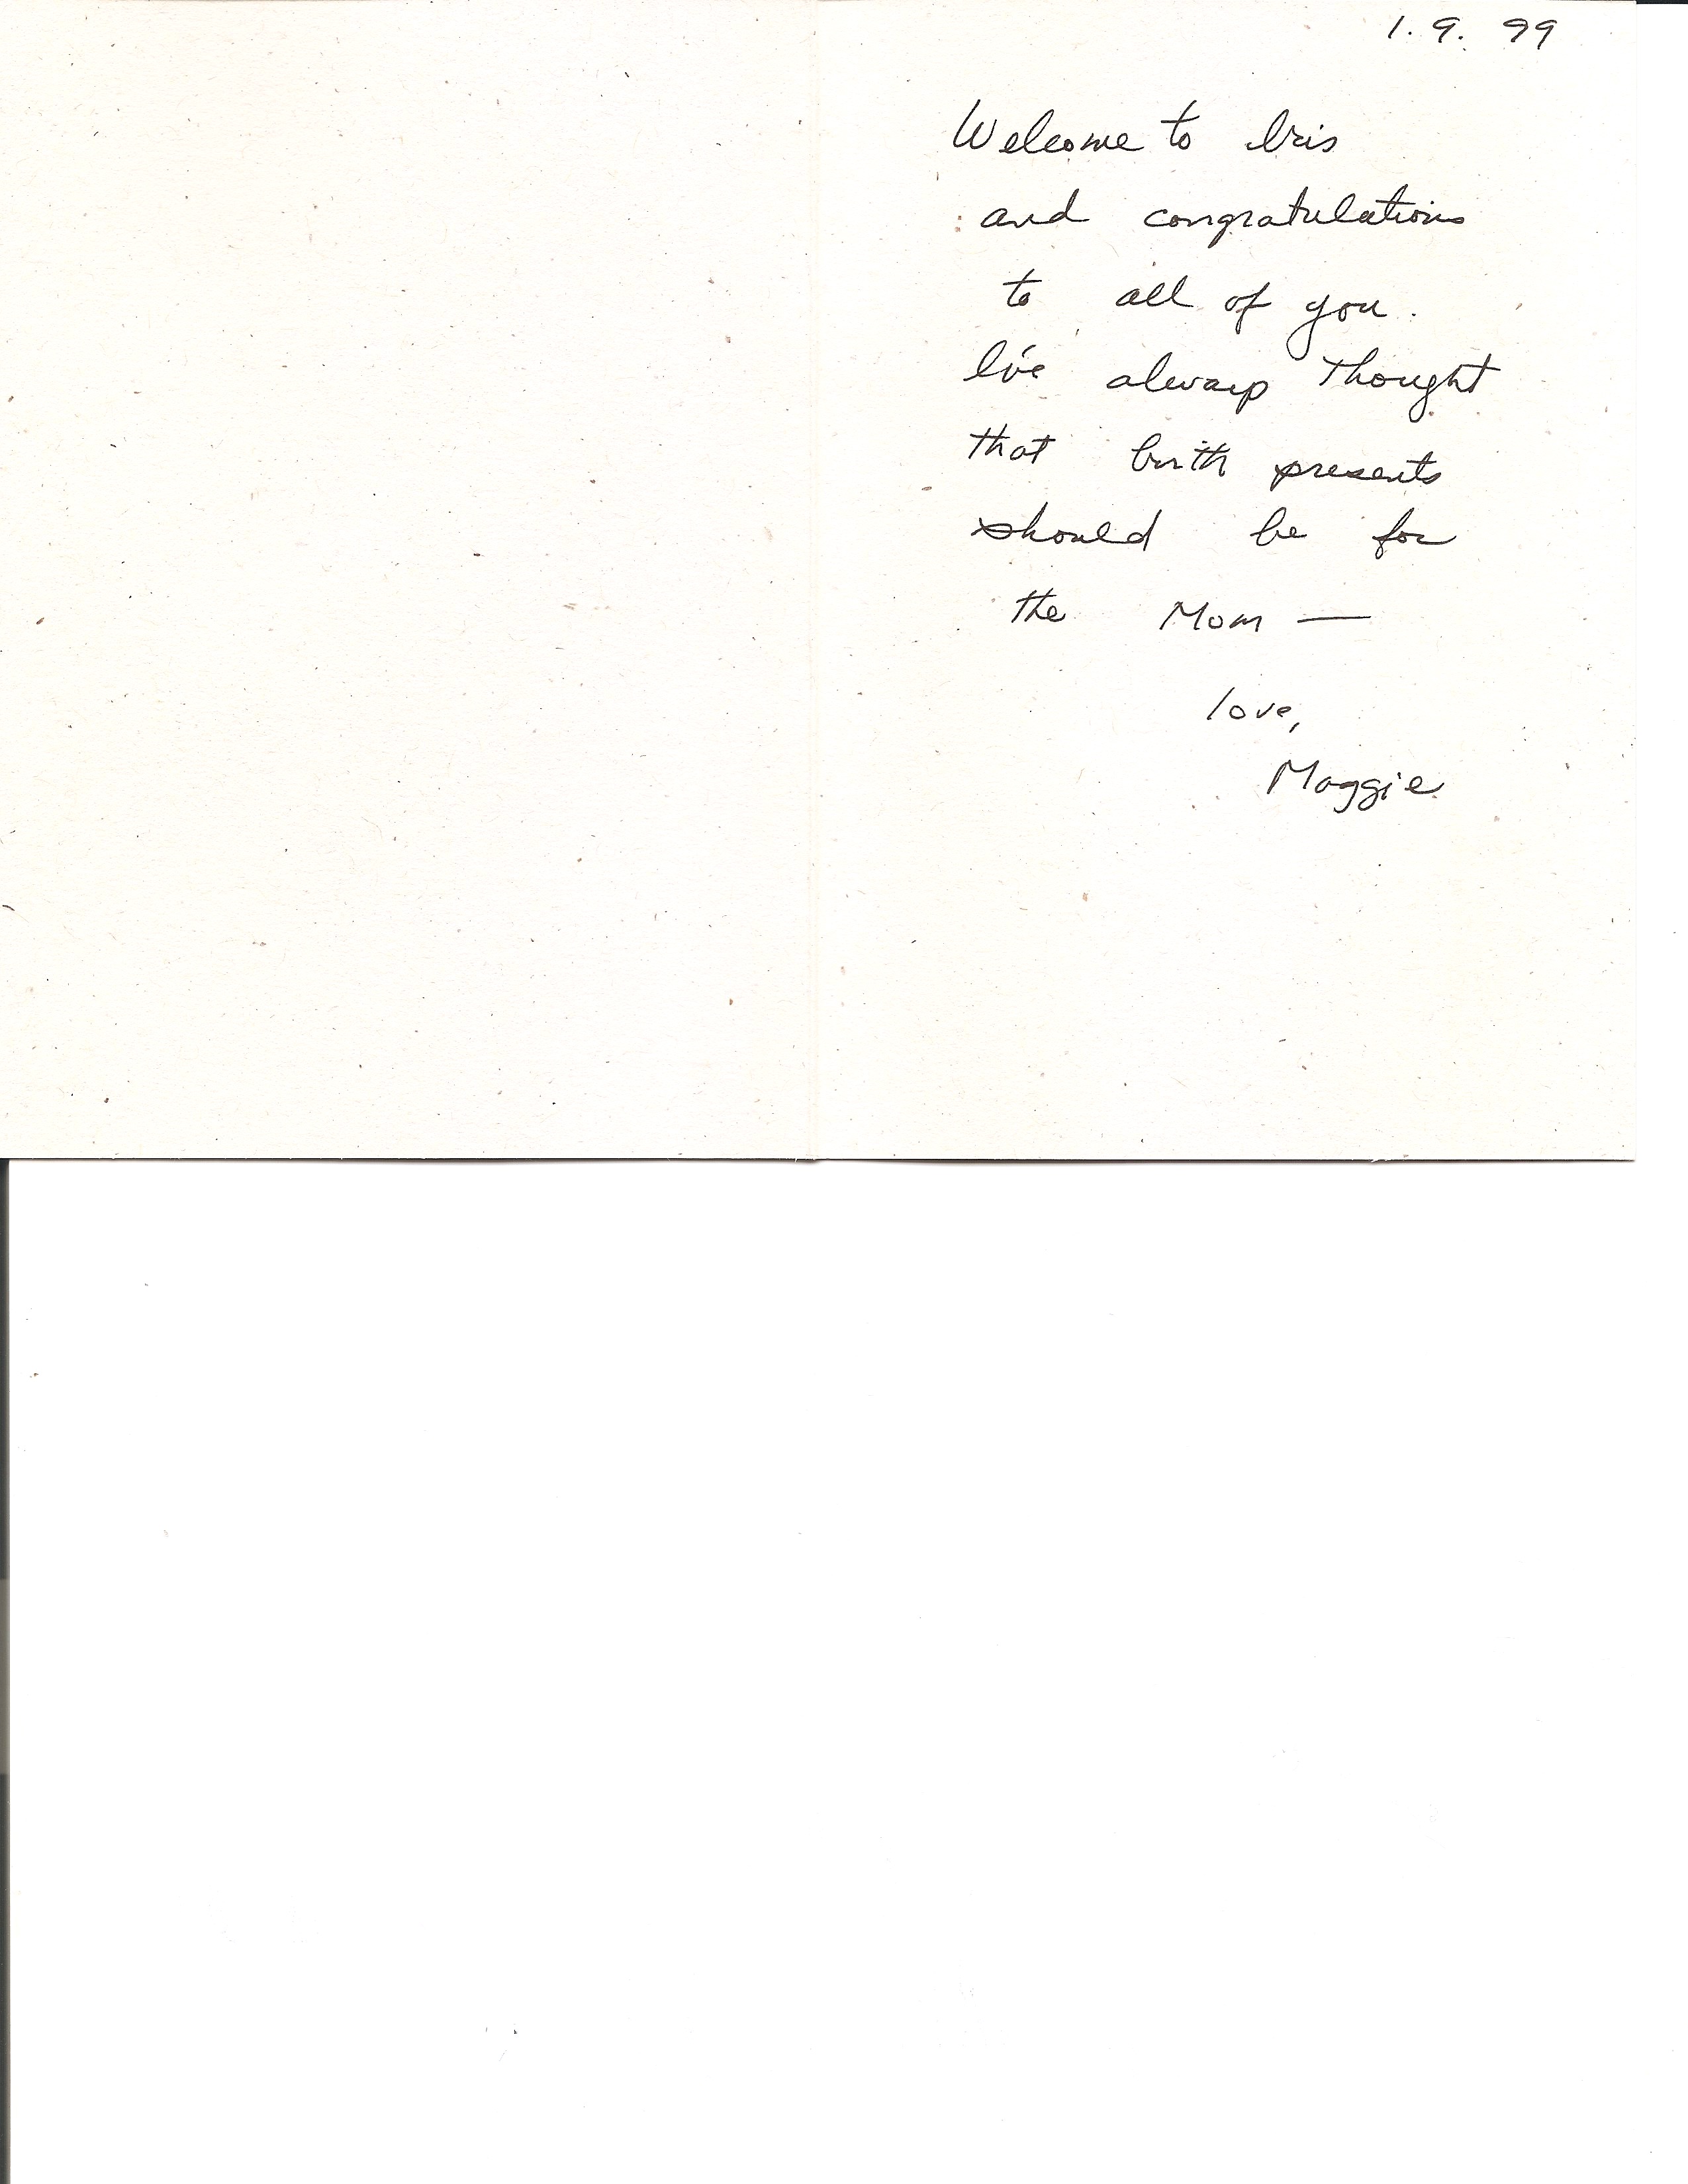 1. 9. 99
Welcome to Iris
and congratulations
to all of you.
I've always thought
that birth presents
should be for
the Mom —
love,
Maggie